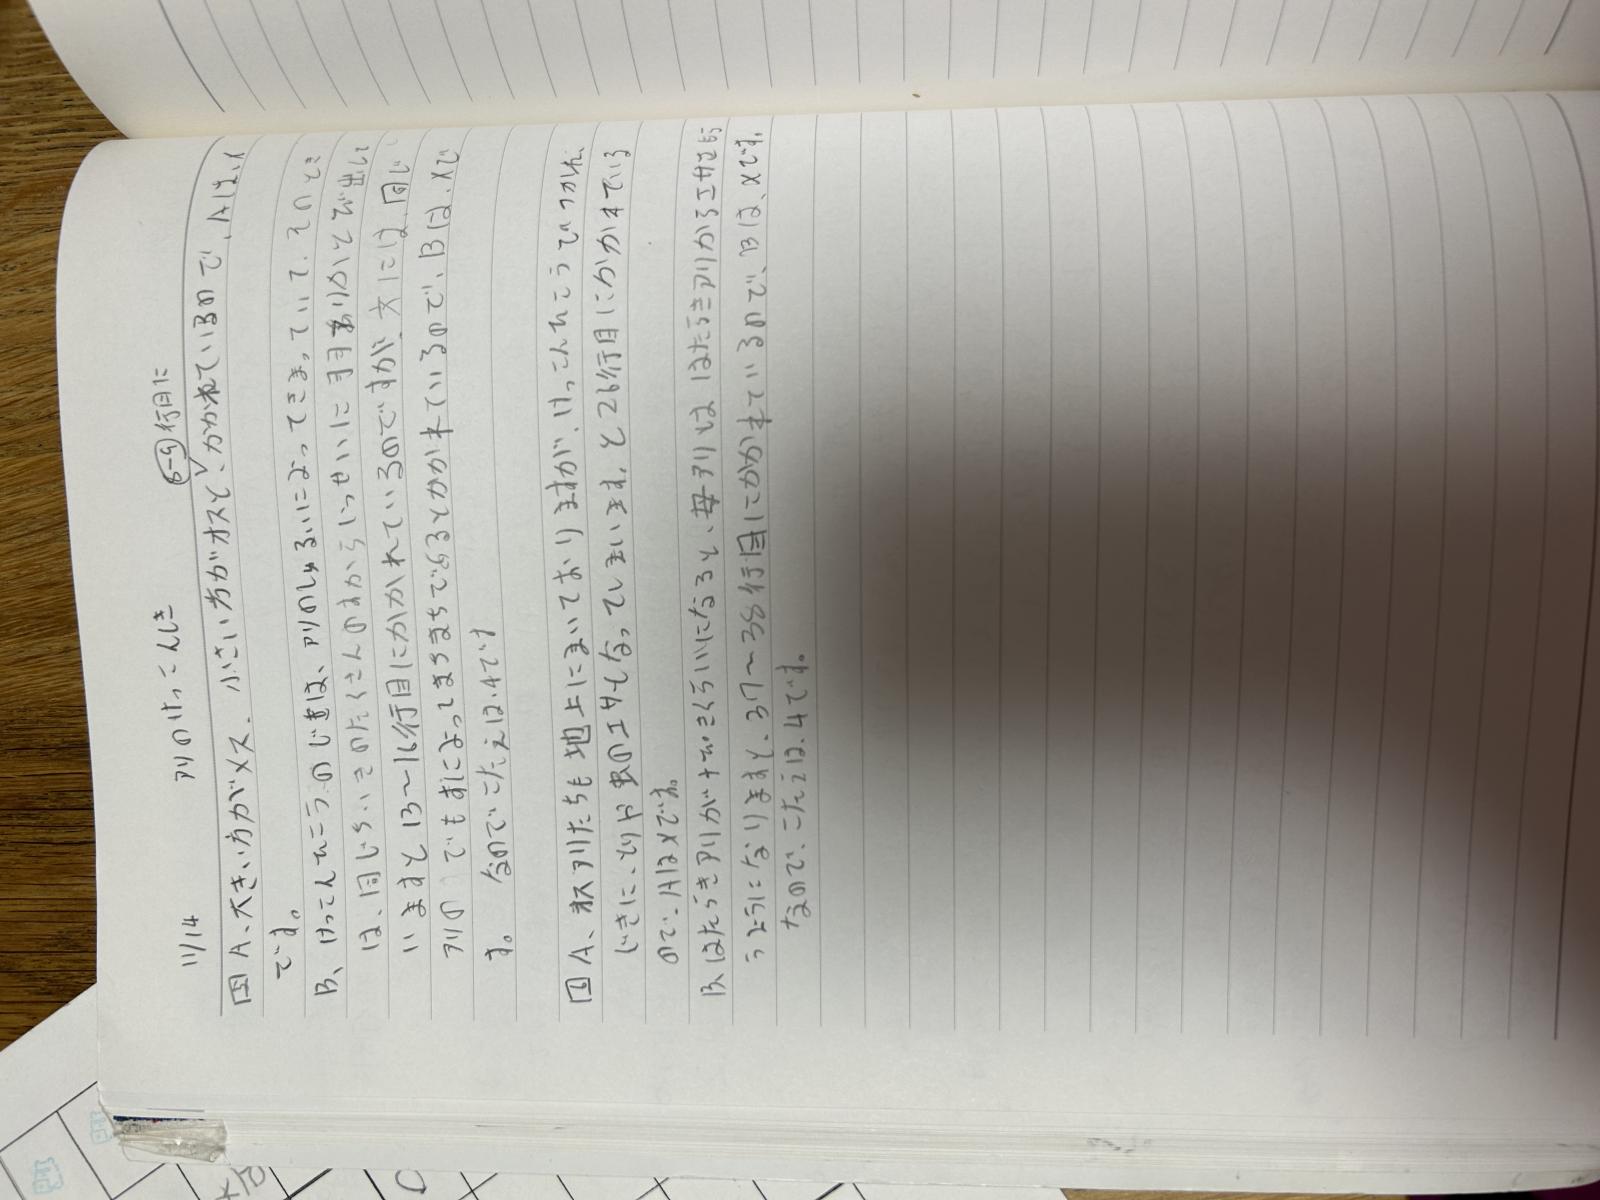 11/14 アリのけっこんしき 8-9行目に
A、大きい方がメス、小さい方がオスと、かかれているので、Aは、×
です。
B、けっこんひこうのじきは、アリのしゅるいによってきまっていて、そのとき
は、同じちいきのたくさんのすからいっせいに羽ありがとび出して
いますと13〜16行目にかかれているのですが、文には、同じ
アリの でもすによってまちまちであるとかかれているので、Bは、×で
す。 なのでこたえは、4です
A、オスアリたちも地上にまいておりますが、けっこんひこうでつかれ、
じきに、とりや虫のエサとなってしまいます。と26行目にかかれている
ので、Aは×です。
B、はたらきアリが十ぴきくらいになると、母アリは はたらきアリからエサをもら
うようになりますと、37〜38行目にかかれているので、Bは、×です。
なので、こたえは、4です。